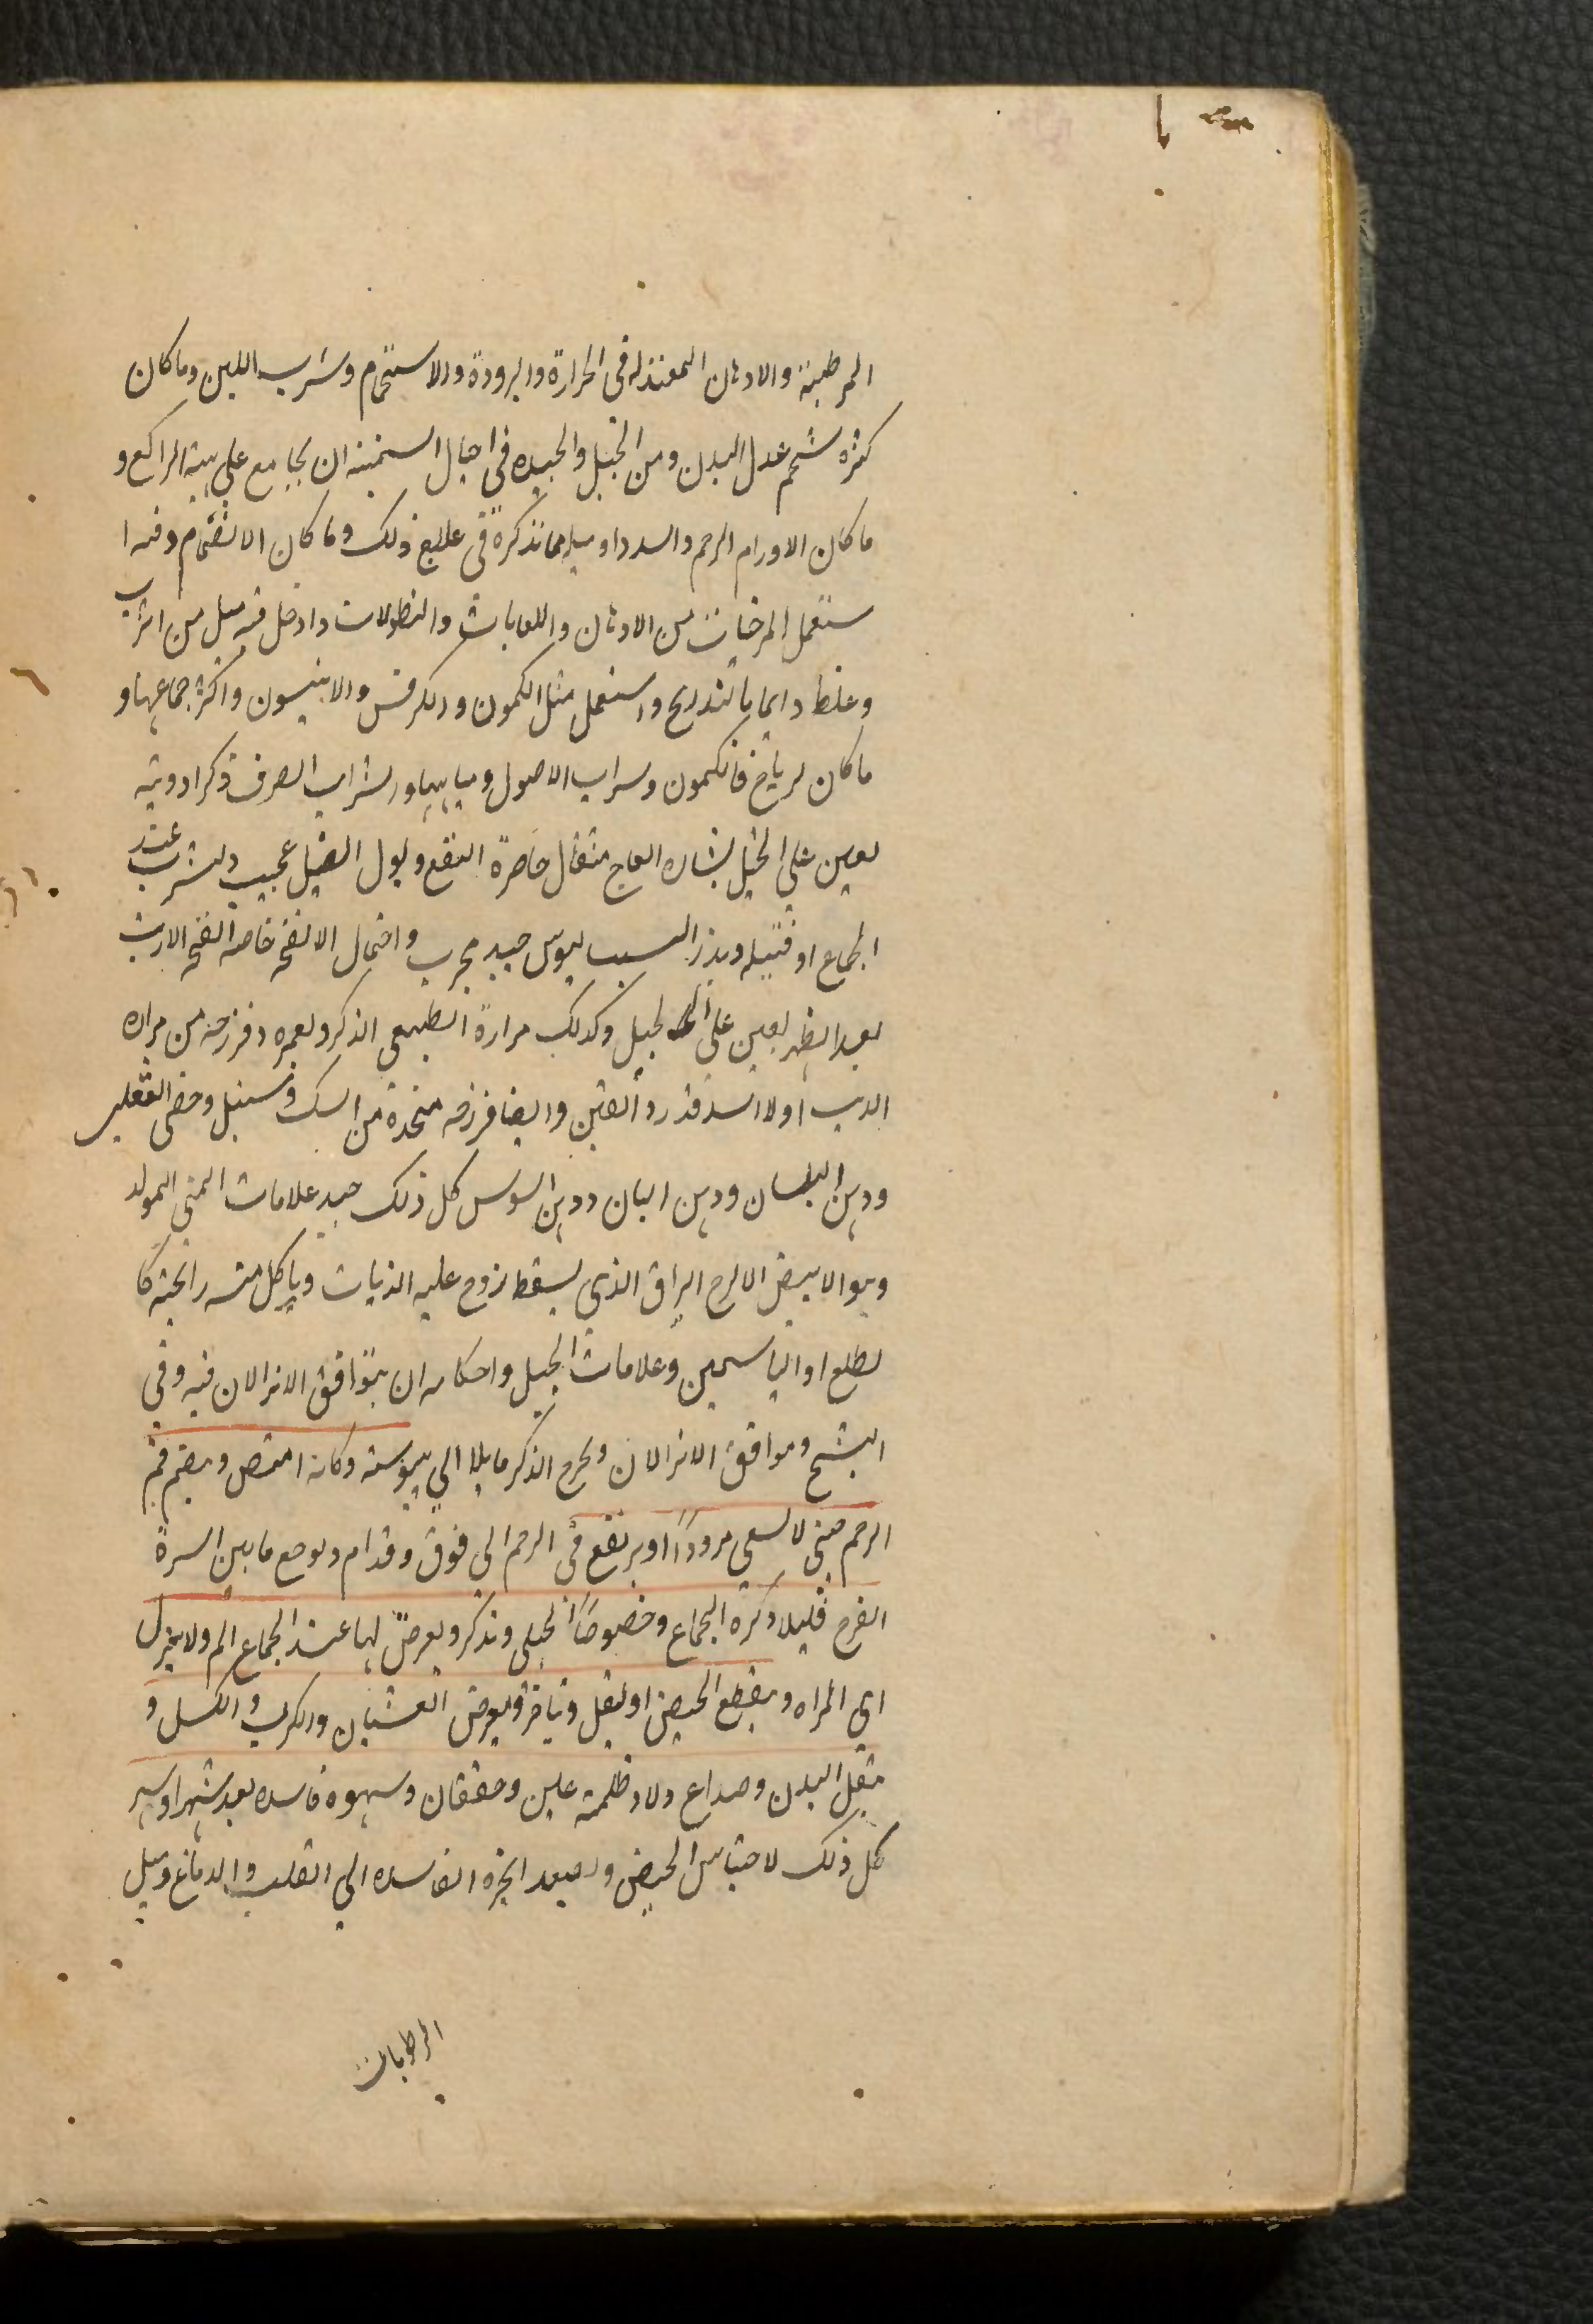 المرطبة والادهان المعتدله فى الحرارة والبرودة والاستحمام وشرب اللبن وما كان
كثرة شحم عدل البدن ومن الحيل والجيده فى احبال السمينه ان يجامع على هيئة الراكع و
ما كان الاورام الرحم والسدد او ميله مما نذكره فى علاج ذلك وما كان الانضمام وفه ا
ستعمل المرخيات من الادهان واللعابات والنطولات وادخل فيه ميل من اسرب
وغلظ دايما بالتدريج واستعمل مثل الكمون والكرفس والانيسون واكثر جماعها و
ما كان لرياح فالكمون وشراب الاصول ومياهها والشراب الصرف ذكر ادوية
يعين على الحبل نشاره العاج مثقال حاضرة النفع وبول الفيل عجيب ويشرب عند
الجماع او قبيله وبذر السيساليوس جيد مجرب واحتمال الانفحه خاصه انفحه الارنب
بعد الطهر يعين على الحبل وكذلك مرارة الظبى الذكر وبعره وفرزجه من مراره
الذيب او الاسد قدر دانقين وايضا فرزجه متخذة من السك وسنبل وخصى الثعلب
ودهن البلسان ودهن البان ودهن السوس كل ذلك جيد علامات المنى المولد
وهو الابيض اللزج البراق الذى يسقط زوج عليه الذباب وياكل منه رائحته كا
لطلع او الياسمين وعلامات الحبل واحكامه ان يتوافق الانزالان فيه وفى
الشبح وموافق الانزالان ويخرج الذكر مايلا الى يبوسة وكانه امتص وينضم فم
الرحم حتى لا يسعى مرودًا او يرتفع فى الرحم الى فوق وقدام ويوجع ما بين السرة
الفرج قليلا وكره الجماع وخصوصًا الحبلى وتذكر ويعرض لها عند الجماع الم ولا ينزل
اى المراه وينقطع الحيض او يقل وتاخر ويعرض الغشيان والكرب والكسل و
ثقل البدن وصداع ودوار وظلمة عين وخفقان وشهوة فاسده بعد شهر او شهر
كل ذلك لاحتباس الحيض وتصعد ابخرة الفاسده الى القلب والدماغ وميل
الرطوبات